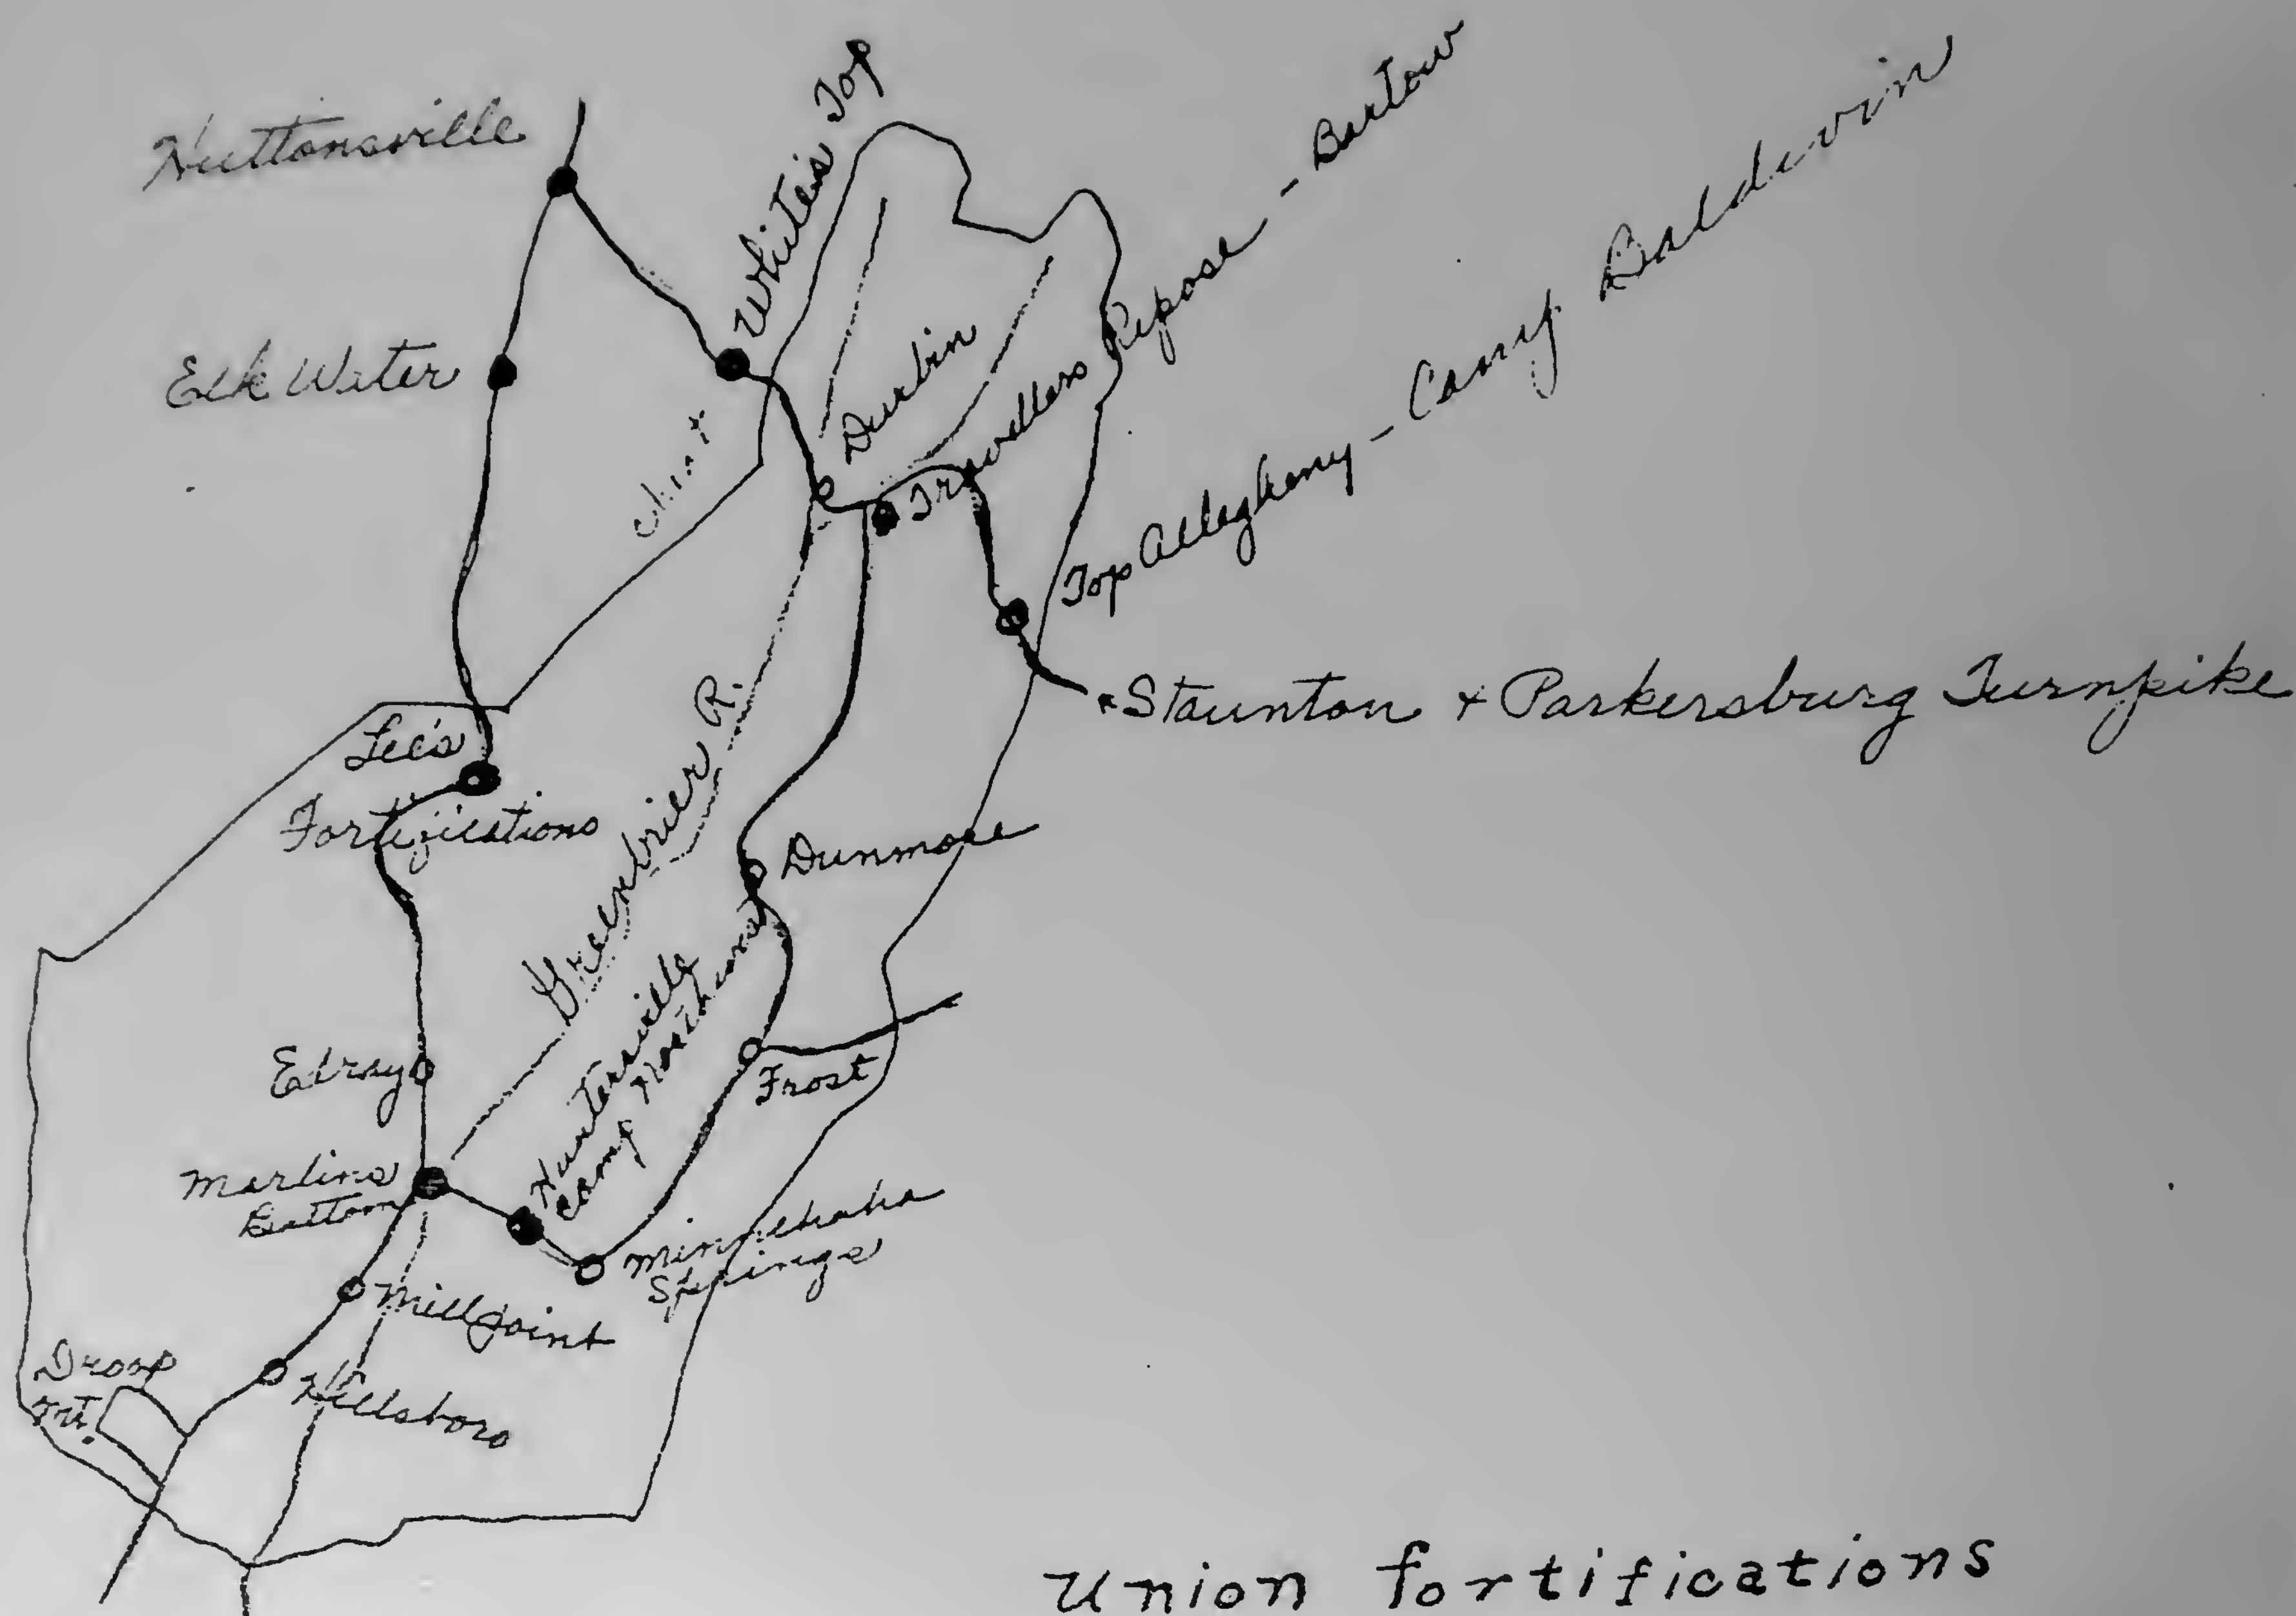 Huttonsville
White's Top
Elk Water
Durbin
Travellers Repose - Bartow
Top Allegheny - Camp Baldwin
Staunton + Parkersburg Turnpike
Lee's
Fortifications
Greenbrier R.
Dunmore
Huntersville
Camp Northam
Edray
Frost
Marlins
Bottom
Minnehaha
Springs
Millpoint
Droop
Mt.
Hillsboro
Union fortifications